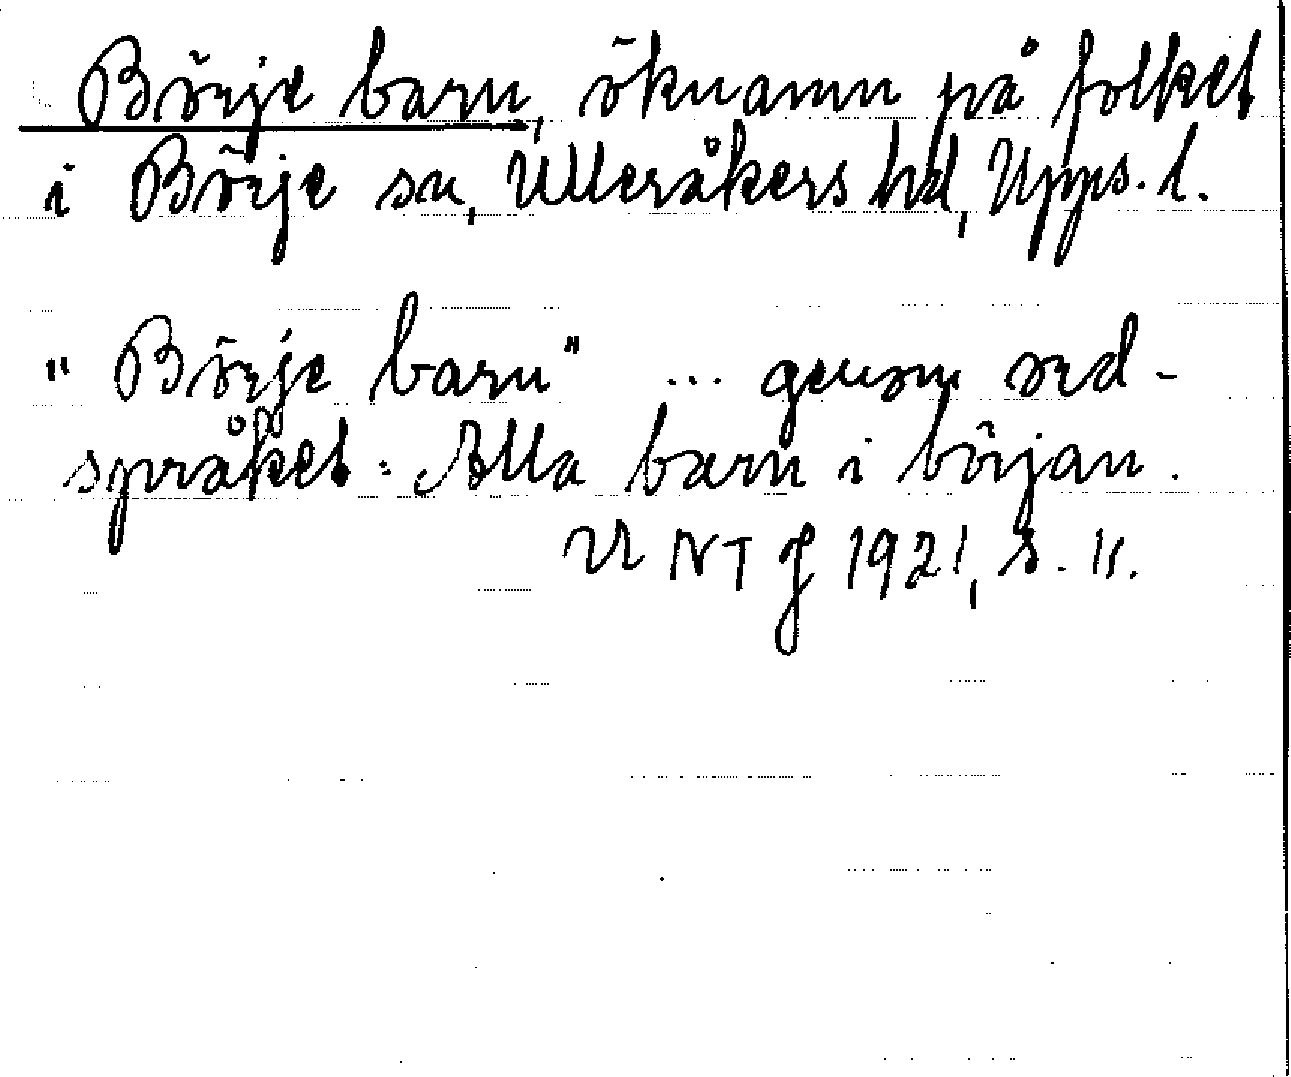 Börje barn, öknamn på folket
i Börje sn, Ulleråkers hd, Upps. l.
"Börje barn" ... genom ord-
språket: Alla barn i början.
UNT J 1921, s. 11.